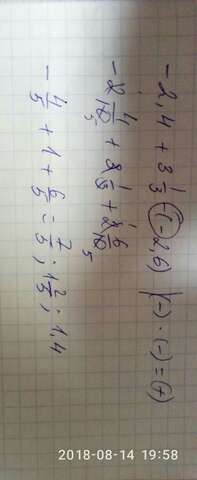 -2,4 + 3 1/3 - (-2,6) | (-) · (-) = (+)
-2 4/10 + 3 1/3 + 2 6/10
5 5
- 4/5 + 1 + 6/5 = 7/5 ; 1 2/5 ; 1,4
2018-08-14 19:58